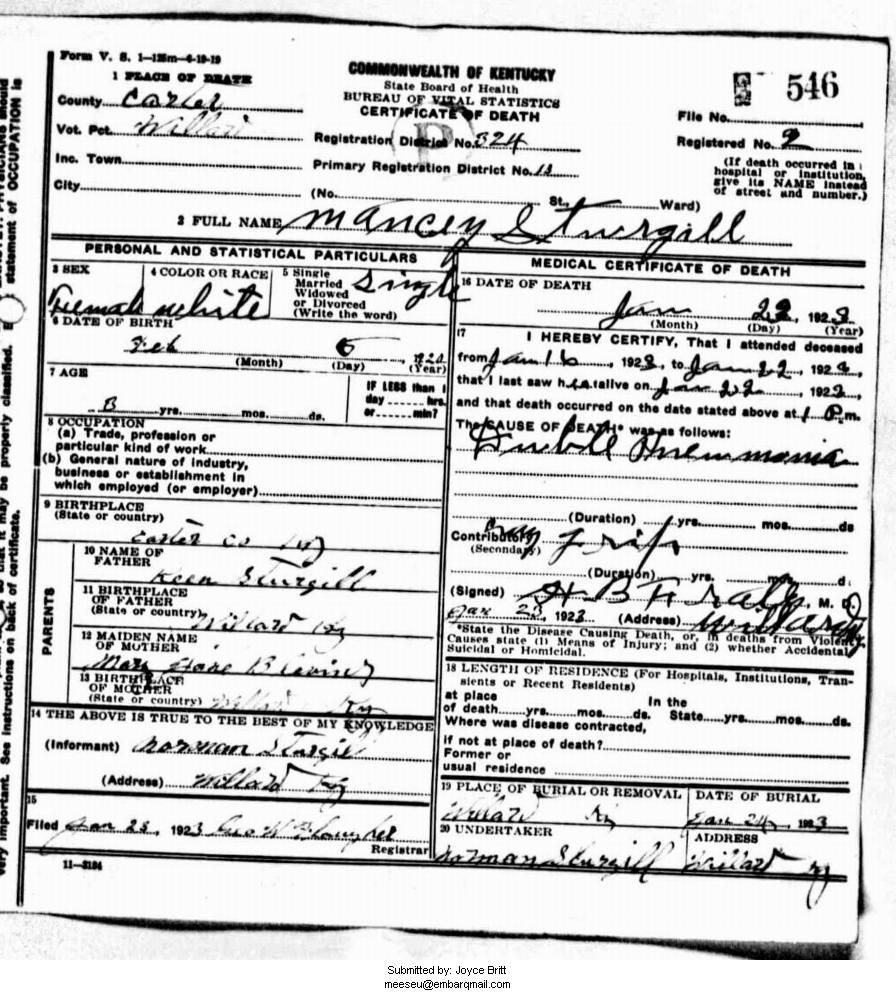 Form V. S. 1—125m—6-19-19
COMMONWEALTH OF KENTUCKY
State Board of Health
BUREAU OF VITAL STATISTICS
CERTIFICATE OF DEATH
546
1 PLACE OF DEATH
County Carter
Vot. Pct. Willard
Inc. Town
City
Registration District No. 324
Primary Registration District No.
(No. St., Ward)
File No.
Registered No. 2
(If death occurred in
hospital or institution,
give its NAME instead
of street and number.)
2 FULL NAME Mancey Sturgill
PERSONAL AND STATISTICAL PARTICULARS
3 SEX
Female
4 COLOR OR RACE
White
5 Single
Married
Widowed
or Divorced
(Write the word)
Single
6 DATE OF BIRTH
Feb
(Month) (Day) (Year)
7 AGE
yrs. mos. ds.
IF LESS than 1
day hrs.
or min?
8 OCCUPATION
(a) Trade, profession or
particular kind of work
(b) General nature of industry,
business or establishment in
which employed (or employer)
9 BIRTHPLACE
(State or country)
Carter Co Ky
PARENTS
10 NAME OF
FATHER
Keen Sturgill
11 BIRTHPLACE
OF FATHER
(State or country) Willard Ky
12 MAIDEN NAME
OF MOTHER
Mary Jane Blevins
13 BIRTHPLACE
OF MOTHER
(State or country) Willard Ky
14 THE ABOVE IS TRUE TO THE BEST OF MY KNOWLEDGE
(Informant) Norman Sturgill
(Address) Willard Ky
15
Filed Jan 23, 1923
Registrar
11—3184
MEDICAL CERTIFICATE OF DEATH
16 DATE OF DEATH
Jan 22, 1923
(Month) (Day) (Year)
17
I HEREBY CERTIFY, That I attended deceased
from Jan 16, 1923, to Jan 22, 1923,
that I last saw her alive on Jan 22, 1923,
and that death occurred on the date stated above at 1 P.m.
The CAUSE OF DEATH* was as follows:
Double Pneumonia
(Duration) yrs. mos. ds
Contributory
(Secondary) Grip
(Duration) yrs. mos. d.
(Signed) M. D.
Jan 23, 1923 (Address) Willard Ky
*State the Disease Causing Death, or, in deaths from Violent
Causes state (1) Means of Injury; and (2) whether Accidental,
Suicidal or Homicidal.
18 LENGTH OF RESIDENCE (For Hospitals, Institutions, Tran-
sients or Recent Residents)
at place In the
of death yrs. mos. ds. State yrs. mos. ds.
Where was disease contracted,
if not at place of death?
Former or
usual residence
19 PLACE OF BURIAL OR REMOVAL
Willard Ky
DATE OF BURIAL
Jan 24, 1923
20 UNDERTAKER
Norman Sturgill
ADDRESS
Willard Ky
statement of OCCUPATION is
so that it may be properly classified.
very important. See instructions on back of certificate.
Submitted by: Joyce Britt
meeseu@embarqmail.com